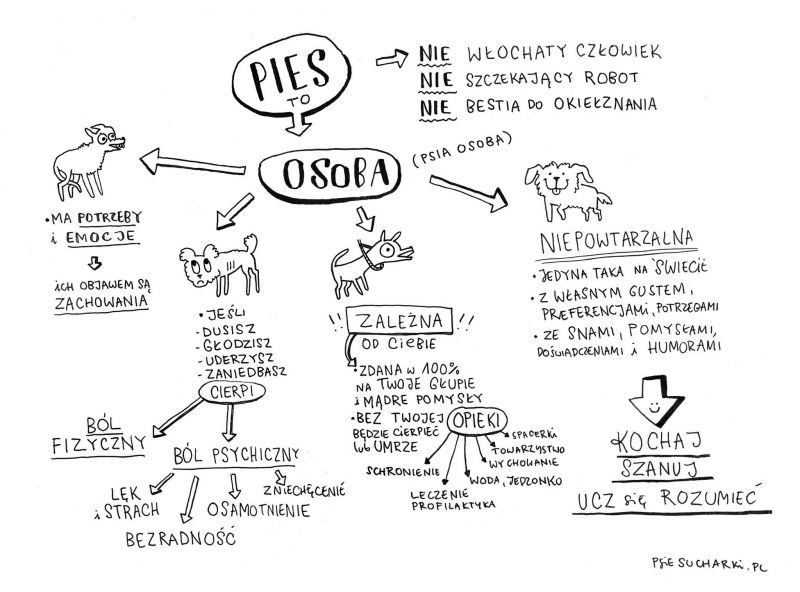 PIES
TO
NIE WŁOCHATY CZŁOWIEK
NIE SZCZEKAJĄCY ROBOT
NIE BESTIA DO OKIEŁZNANIA
OSOBA
(PSIA OSOBA)
• MA POTRZEBY
i EMOCJE
ICH OBJAWEM SĄ
ZACHOWANIA
• JEŚLI
- DUSISZ
- GŁODZISZ
- UDERZYSZ
- ZANIEDBASZ
CIERPI
BÓL
FIZYCZNY
BÓL PSYCHICZNY
LĘK
i STRACH
BEZRADNOŚĆ
OSAMOTNIENIE
ZNIECHĘCENIE
!! ZALEŻNA !!
OD CIEBIE
• ZDANA W 100%
NA TWOJE GŁUPIE
i MĄDRE POMYSŁY
• BEZ TWOJEJ OPIEKI
BĘDZIE CIERPIEĆ
lub UMRZE
SCHRONIENIE
LECZENIE
PROFILAKTYKA
WODA, JEDZONKO
WYCHOWANIE
TOWARZYSTWO
SPACERKI
NIEPOWTARZALNA
• JEDYNA TAKA NA ŚWIECIE
• Z WŁASNYM GUSTEM,
PREFERENCJAMI, POTRZEBAMI
• ZE SNAMI, POMYSŁAMI,
DOŚWIADCZENIAMI i HUMORAMI
KOCHAJ
SZANUJ
UCZ się ROZUMIEĆ
PSIE SUCHARKI.PL